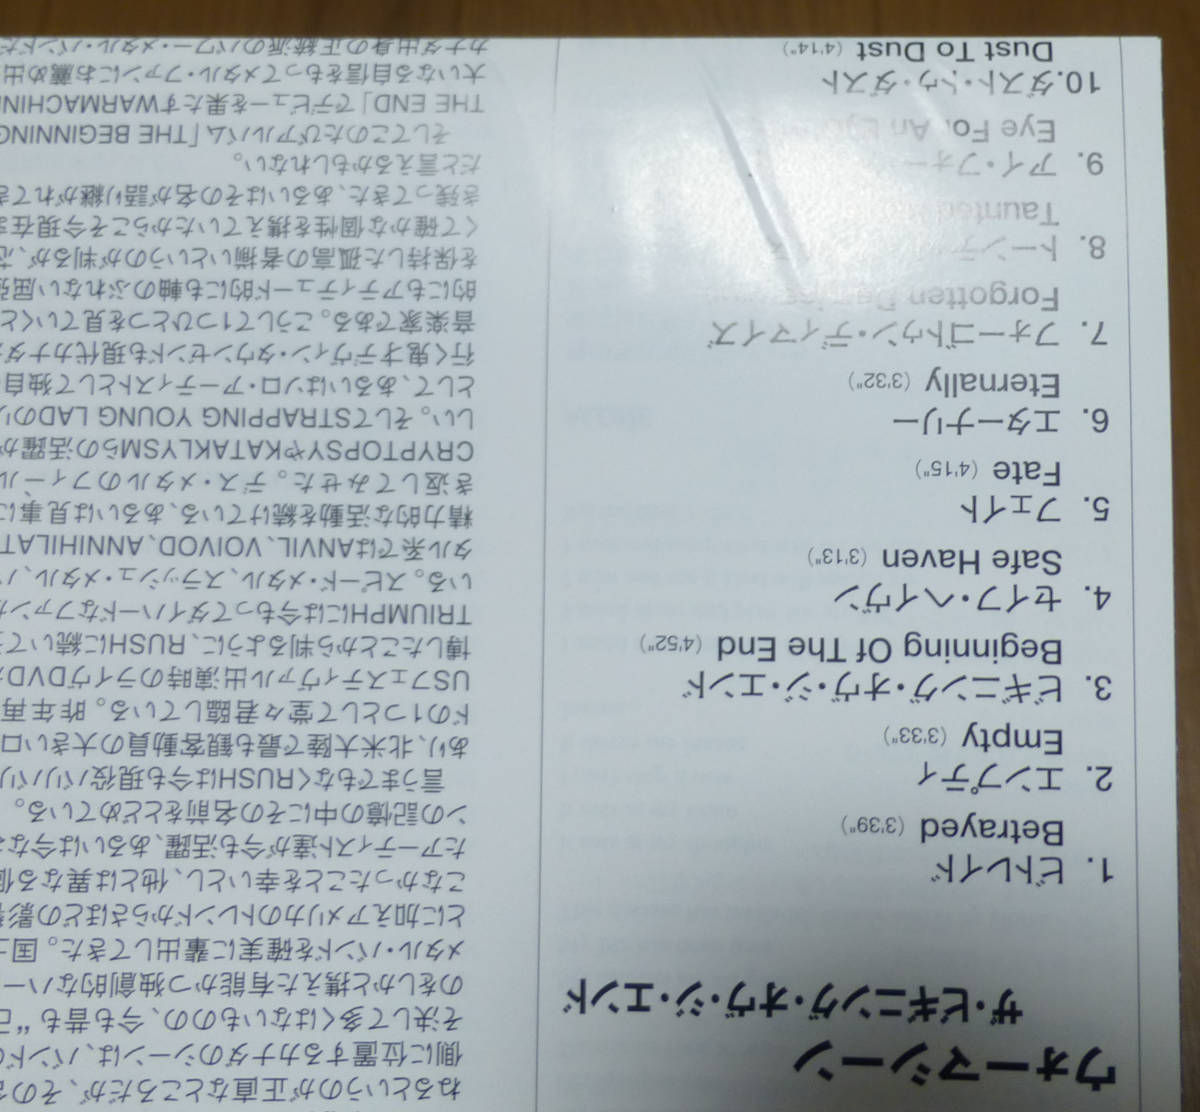 ウォーマシーン
ザ・ビギニング・オヴ・ジ・エンド
1. ビトレイド
Betrayed (3'39")
2. エンプティ
Empty (3'33")
3. ビギニング・オヴ・ジ・エンド
Beginning Of The End (4'52")
4. セイフ・ヘイヴン
Safe Haven (3'13")
5. フェイト
Fate (4'15")
6. エターナリー
Eternally (3'32")
7. フォーゴトゥン・ディマイズ
Forgotten
8. トーンテッド
Taunted
9. アイ・フォー・
Eye For An Eye
10. ダスト・トゥ・ダスト
Dust To Dust (4'14")
ねるというのが正直なところだが、その
側に位置するカナダのシーンは、バンドの
そ決して多くはないものの、今も昔も“
のをしかと携えた有能かつ独創的なハー
メタル・バンドを確実に輩出してきた。国
とに加えアメリカのトレンドからさほどの影
こなかったことを幸いとし、他とは異なる個
たアーティスト達が今も活躍、あるいは今な
ンの記憶の中にその名前をとどめている。
言うまでもなくRUSHは今も現役バリバリ
あり、北米大陸で最も観客動員の大きいロ
ドの1つとして堂々君臨している。昨年再
USフェスティヴァル出演時のライヴDVDが
博したことから判るように、RUSHに続いて
TRIUMPHには今もってダイハードなファンが
いる。スピード・メタル、スラッシュ・メタル、パ
タル系ではANVIL、VOIVOD、ANNIHILAT
精力的な活動を続けている、あるいは見事に
き返してみせた。デス・メタルのフィール
CRYPTOPSYやKATAKLYSMらの活躍が
しい。そしてSTRAPPING YOUNG LADの
として、あるいはソロ・アーティストとして独自
行く鬼才デヴィン・タウンゼンドも現代カナダ
音楽家である。こうして1つひとつを見ていくと
的にもアティテュード的にも軸のぶれない屈強
を保持した孤高の者揃いというのが判るが、
くて確かな個性を携えていたからこそ今現在ま
き残ってきた、あるいはその名が語り継がれてき
だと言えるかもしれない。
そしてこのたびアルバム「THE BEGINNING
THE END」でデビューを果たすWARMACHIN
大いなる自信をもってメタル・ファンにお薦め出
カナダ出身の正統派のパワー・メタル・バンドだ